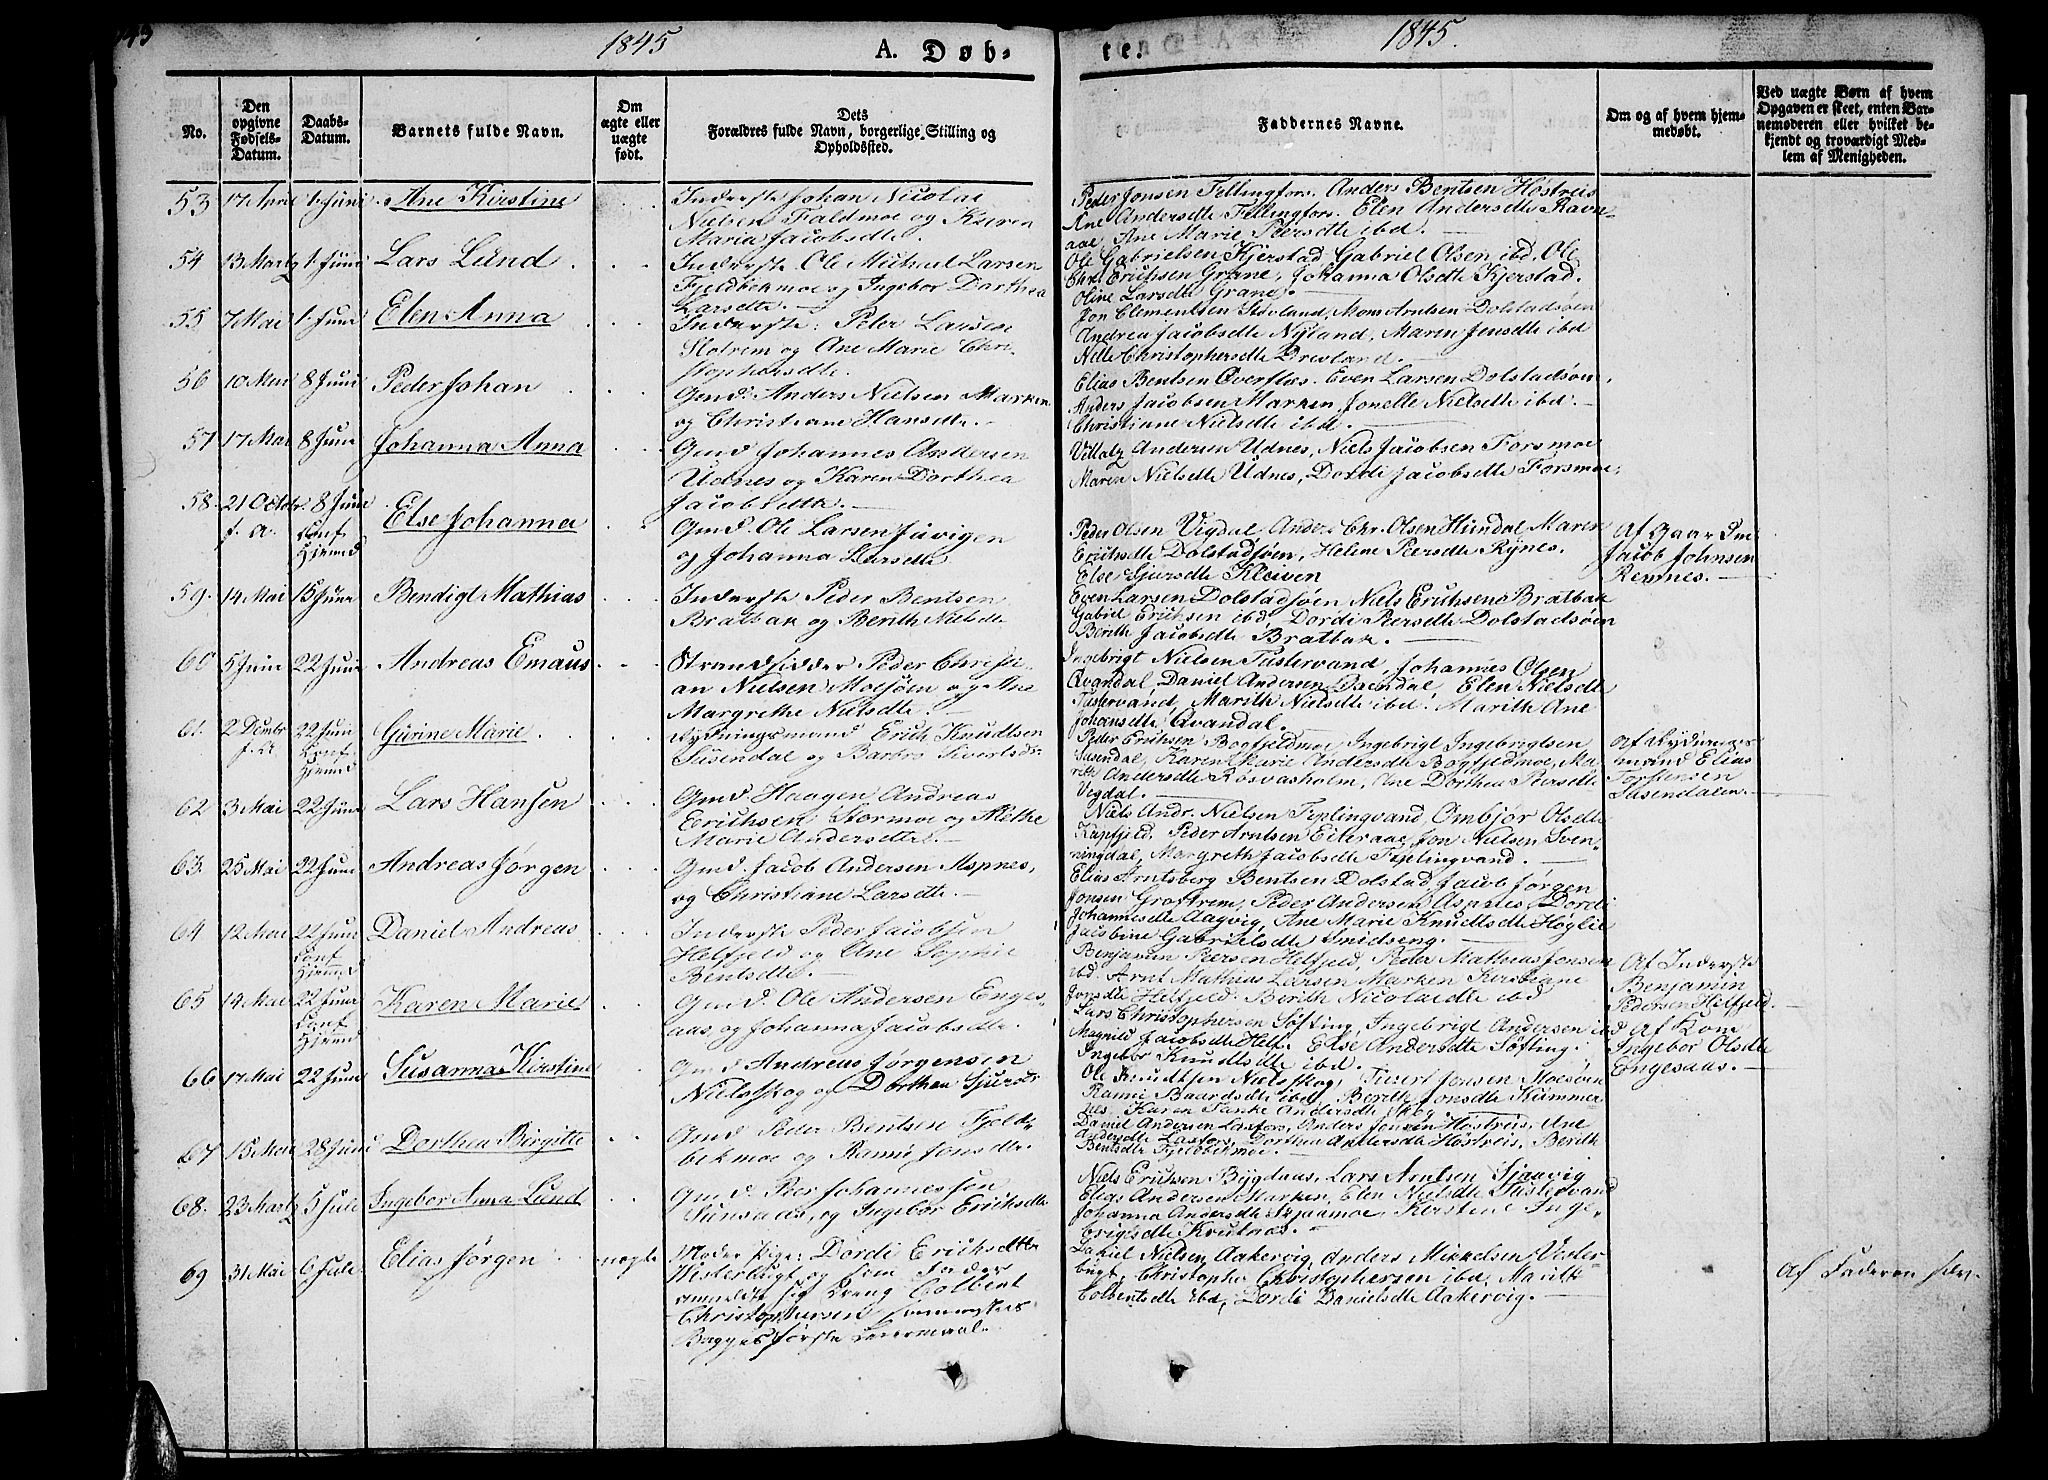 1845 A. Døb-
te. 1845.
No.
Den opgivne Fødsels-Datum.
Daabs-Datum.
Barnets fulde Navn.
Om ægte eller uægte født.
Dets Forældres fulde Navn, borgerlige Stilling og Opholdssted.
Faddernes Navne.
Om og af hvem hjem-medøbt.
Ved uægte Børn af hvem Opgaven er skeet, enten Bar-nemoderen eller hvilket be-kjendt og troværdigt Med-lem af Menigheden.
53 17 April 1 Juni Ane Kirstine
Inderste Johan Nicolai
Nielsen Faldmoe og Karen
Maria Jacobsdtr.
Peder Jonsen Fellingfors. Anders Bentsen Høstreis
Ane Andersdtr Fellingfors. Elen Andersdtr Ravn-
aae, Ane Marie Peersdtr ibd.
54 13 Martz 1 Juni Lars Lund
Inderste Ole Michael Larsen
Fjeldbekmoe og Ingebor Dorthea
Larsdtr.
Ole Gabrielsen Kjerstad, Gabriel Olsen ibd. Ole
Chr. Erichsen Grane, Johanna Olsdtr Kjerstad.
Oline Larsdtr Grane.
55 7 Mai 1 Juni Elen Anna
Inderste: Peter Larsen
Slotrem og Ane Marie Chri-
stophersdtr.
Jon Clementsen Stovland, Mons Arntsen Dolstadsøen
Andrea Jacobsdtr Nyland, Maren Jensdtr ibd
Nille Christophersdtr Drevland.
56 10 Mai 8 Juni Peder Johan
Gmd. Anders Nielsen Marken
og Christiane Hansdtr.
Elias Bentsen Øverflæs. Even Larsen Dolstadsøen,
Anders Jacobsen Marken, Jonelle Nielsdtr ibd.
Christiane Nielsdtr ibd.
57 17 Mai 8 Juni Johanna Anna
Gmd Johannes Andersen
Udnes og Karen Dorthea
Jacobsdtr.
Villatz Andersen Udnes, Niels Jacobsen Forsmoe
Maren Nielsdtr Udnes, Dordi Jacobsdtr Forsmoe,
58. 21 Octbr. f. a. 8 Juni Conf Hjemd Else Johanna
Gmd. Ole Larsen Juvigen
og Johanna Larsdtr
Peder Olsen Vigdal, Anders Chr. Olsen Hundal Maren
Erichsdtr Dolstadsøen, Helene Peersdtr Rynes.
Else Sjursdtr Kleiven
Af Gaar Im
Jacob Johnsen
Remnes.
59. 14 Mai 15 Juni Bendigt Mathias
Inderste Peder Bentsen
Bratbak og Berith Nielsdtr
Even Larsen Dolstadsøen Niels Erichsen Bratbak
Gabriel Erichsen ibd, Dordi Peersdtr Dolstadsøen
Berith Jacobsdtr Bratbak.
60 5 Juni 22 Juni Andreas Emaus
Strandsidder Peder Christi-
an Nielsen Moesjøen og Ane
Margrethe Nielsdtr.
Ingebrigt Nielsen Tustervand, Johannes Olsen
Qvandal, Daniel Andersen Qvandal, Elen Nielsdtr
Tustervand, Marith Nielsdtr ibd. Marith Ane
Johansdtr Qvandal.
61. 2 Dembr f. a. 22 Juni Conf Hjemd Gurine Marie
Rydningsmand Erich Knudtsen
Susendal og Barbro Sivertsdr
Peder Erichsen Bogfjeldmoe, Ingebrigt Ingebrigtsen
Susendal, Karen Marie Andersdtr Bogfjeldmoe, Ma-
rith Andersdtr Røsvasholm, Ane Dorthea Peersdtr
Vegdal.
Af Rydnings
mand Elias
Torstensen
Susendalen.
62 3 Mai 22 Juni Lars Hansen
Gmd. Haagen Andreas
Erichsen Stormoe og Methe
Marie Andersdtr.
Niels Andr. Nielsen Fiplingvand, Ombjør Olsdtr
Kapfjeld, Peder Arntsen Eiteraae, Jon Nielsen Sven-
ningdal, Margreth Jacobsdtr Fiplingvand.
63. 25 Mai 22 Juni Andreas Jørgen
Gmd. Jacob Andersen Aspnes,
og Christiane Larsdtr.
Elias Arntsberg Bentsen Dolstad, Jacob Jørgen
Jonsen Groftrem, Peder Andersen Aspnes, Dordi
Johannesdtr Aagvig, Ane Marie Knudtsdtr Høglie
Jacobine Gabrielsdtr Smidseng.
64 12 Mai 22 Juni Conf Hjemd Daniel Andreas
Inderste Peder Jacobsen
Helfjeld og Ane Sophie
Bentsdtr.
Benjamin Peersen Helfjeld, Peder Mathias Jonsen
ibd. Arnt Mathias Larsen Marken Kerstiane
Jonsdtr Helfjeld. Berith Nicolaidtr ibd
Af Inderste
Benjamin
Pedersen Helfjeld.
65 14 Mai 22 Juni Conf Hjemd Karen Marie
Gmd. Ole Andersen Enges-
aas og Johanna Jacobsdtr.
Lars Christophersen Søfting, Ingebrigt Andersen ibd
Magnild Jacobsdtr Helf. Else Andersdtr Søfting.
Ingebor Knudtsdtr ibd.
Af Kone
Ingebor Olsdtr
Engesaas.
66 17 Mai 22 Juni Susanna Kirstine
Gmd Andreas Jørgensen
Nielsskog og Dorthea Sjursdr
Ole Knudtsen Nielsskog, Sivert Jonsen Moesøen
Rannie Baardsdtr ibd, Berith Jonsdtr Kummer
nes. Karen Tanke Andersdtr Skog.
67 15 Mai 28 Juni Dorthea Birgitte
Gmd Peder Bentsen Fjeld-
bekmoe og Rannie Jonsdtr.
Daniel Andersen Laxfors, Anders Jonsen Høstreis. Ane
Andersdtr Laxfors, Dorthea Andersdtr Høstreis, Berith
Bentsdtr Fjeldbekmoe.
68. 23 Martz 5 Juli Ingebor Anna Lund
Gmd. Peer Johannessen
Sunsaas, og Ingebor Erichsdtr
Niels Erichsen Bygdaas, Lars Arntsen Sjaavig
Elias Andersen Marken, Elen Nielsdtr Tustervand
Johanna Andersdtr Skjaamoe, Kerstine Inge-
brigtsdtr Krutnæs.
69 31 Mai 6 Juli Elias Jørgen uægte
Moder Pige: Dordi Erichsdtr
Westerbugt og som Fader
anmeldte sig Dreng Colbent
Christophersen
Begges første Leiermaal.
Daniel Nielsen Aakervig, Anders Mikkelsen Vester-
bugt, Christopher Christophersen ibd, Marith
Colbentsdtr ibd, Dordi Danielsdtr Aakervig.
Af Faderen selv.